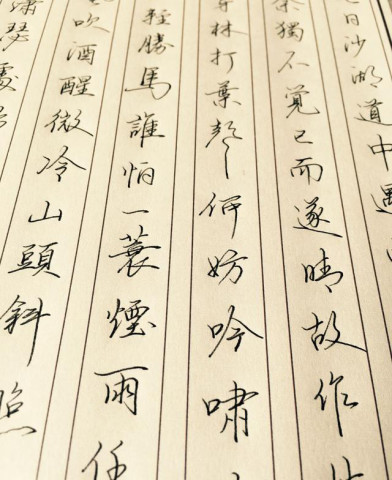 日沙湖道中遇
余獨不覺已而遂晴故作此
穿林打葉聲何妨吟嘯
輕勝馬誰怕一蓑煙雨任
吹酒醒微冷山頭斜照
蕭瑟處